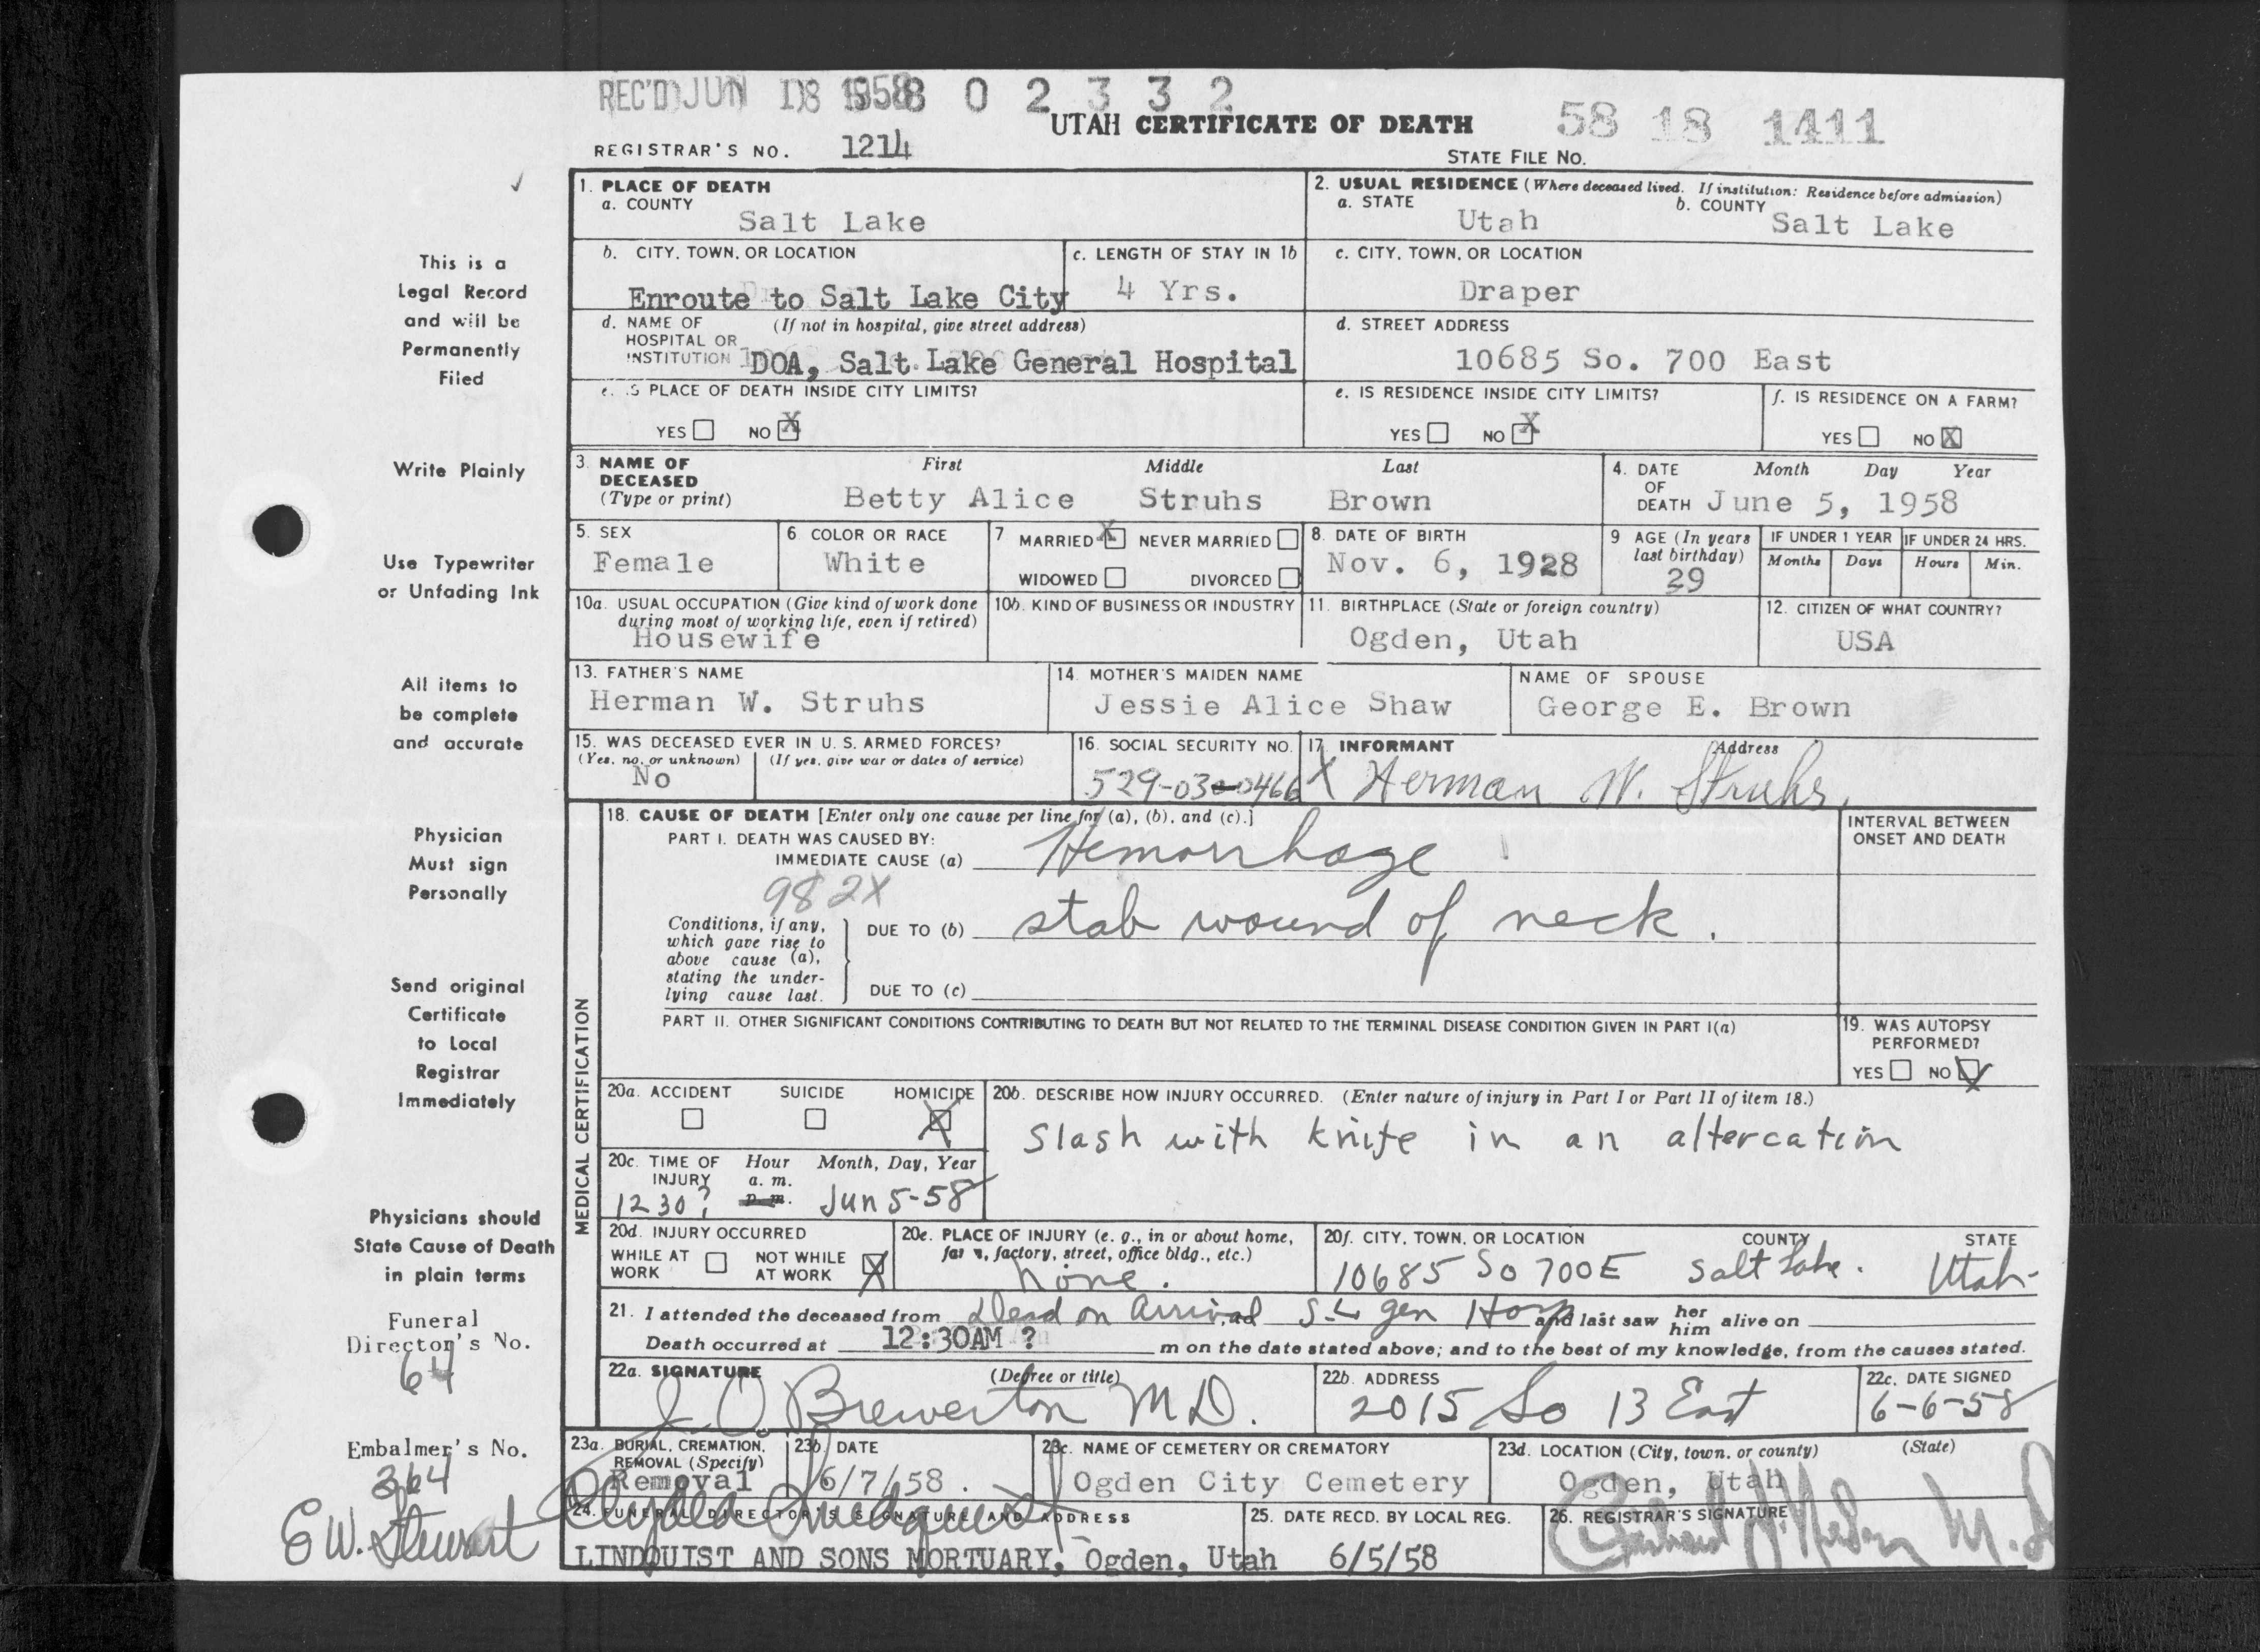 REC'D JUN 18 1958 0 2 3 3 2
UTAH CERTIFICATE OF DEATH 58 18 1411
REGISTRAR'S NO. 1214
STATE FILE NO.
1. PLACE OF DEATH
a. COUNTY
Salt Lake
2. USUAL RESIDENCE (Where deceased lived. If institution: Residence before admission)
a. STATE
Utah
b. COUNTY
Salt Lake
b. CITY, TOWN, OR LOCATION
Enroute to Salt Lake City
c. LENGTH OF STAY IN 1b
4 Yrs.
c. CITY, TOWN, OR LOCATION
Draper
d. NAME OF (If not in hospital, give street address)
HOSPITAL OR
INSTITUTION DOA, Salt Lake General Hospital
d. STREET ADDRESS
10685 So. 700 East
e. IS PLACE OF DEATH INSIDE CITY LIMITS?
YES NO X
e. IS RESIDENCE INSIDE CITY LIMITS?
YES NO X
f. IS RESIDENCE ON A FARM?
YES NO X
3. NAME OF DECEASED
(Type or print)
First Middle Last
Betty Alice Struhs Brown
4. DATE OF DEATH
Month Day Year
June 5, 1958
5. SEX
Female
6 COLOR OR RACE
White
7 MARRIED X NEVER MARRIED
WIDOWED DIVORCED
8. DATE OF BIRTH
Nov. 6, 1928
9 AGE (In years
last birthday)
29
IF UNDER 1 YEAR
Months Days
IF UNDER 24 HRS.
Hours Min.
10a. USUAL OCCUPATION (Give kind of work done
during most of working life, even if retired)
Housewife
10b. KIND OF BUSINESS OR INDUSTRY
11. BIRTHPLACE (State or foreign country)
Ogden, Utah
12. CITIZEN OF WHAT COUNTRY?
USA
13. FATHER'S NAME
Herman W. Struhs
14. MOTHER'S MAIDEN NAME
Jessie Alice Shaw
NAME OF SPOUSE
George E. Brown
15. WAS DECEASED EVER IN U. S. ARMED FORCES?
(Yes, no, or unknown) (If yes, give war or dates of service)
No
16. SOCIAL SECURITY NO.
529-03-0466
17. INFORMANT Address
X Herman W. Struhs.
MEDICAL CERTIFICATION
18. CAUSE OF DEATH [Enter only one cause per line for (a), (b), and (c).]
PART I. DEATH WAS CAUSED BY:
IMMEDIATE CAUSE (a) Hemorrhage
982X
INTERVAL BETWEEN
ONSET AND DEATH
Conditions, if any,
which gave rise to
above cause (a),
stating the under-
lying cause last.
DUE TO (b) stab wound of neck.
DUE TO (c)
PART II. OTHER SIGNIFICANT CONDITIONS CONTRIBUTING TO DEATH BUT NOT RELATED TO THE TERMINAL DISEASE CONDITION GIVEN IN PART I(a)
19. WAS AUTOPSY
PERFORMED?
YES NO
20a. ACCIDENT SUICIDE HOMICIDE X
20b. DESCRIBE HOW INJURY OCCURRED. (Enter nature of injury in Part I or Part II of item 18.)
Slash with knife in an altercation
20c. TIME OF INJURY
Hour Month, Day, Year
a. m.
p. m.
1230? Jun 5-58
20d. INJURY OCCURRED
WHILE AT WORK NOT WHILE AT WORK X
20e. PLACE OF INJURY (e. g., in or about home,
farm, factory, street, office bldg., etc.)
home.
20f. CITY, TOWN, OR LOCATION COUNTY STATE
10685 So 700 E Salt Lake. Utah
21. I attended the deceased from Dead on Arrival S-L gen Hosp and last saw her him alive on
Death occurred at 12:30AM ? m on the date stated above; and to the best of my knowledge, from the causes stated.
22a. SIGNATURE (Degree or title)
J. O. Brewerton M D.
22b. ADDRESS
2015 So 13 East
22c. DATE SIGNED
6-6-58
23a. BURIAL, CREMATION,
REMOVAL (Specify)
Removal
23b. DATE
6/7/58.
23c. NAME OF CEMETERY OR CREMATORY
Ogden City Cemetery
23d. LOCATION (City, town, or county) (State)
Ogden, Utah
24. FUNERAL DIRECTOR'S SIGNATURE AND ADDRESS
LINDQUIST AND SONS MORTUARY, Ogden, Utah
25. DATE RECD. BY LOCAL REG.
6/5/58
26. REGISTRAR'S SIGNATURE
This is a
Legal Record
and will be
Permanently
Filed
Write Plainly
Use Typewriter
or Unfading Ink
All items to
be complete
and accurate
Physician
Must sign
Personally
Send original
Certificate
to Local
Registrar
Immediately
Physicians should
State Cause of Death
in plain terms
Funeral
Director's No.
64
Embalmer's No.
364
E W. Stewart